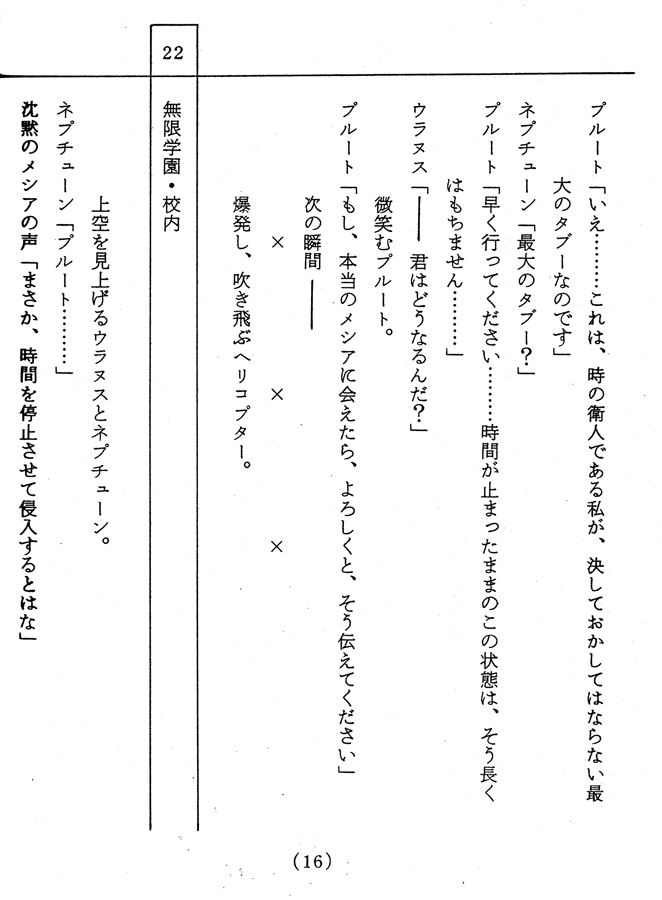 プルート「いえ………これは、時の衛人である私が、決しておかしてはならない最
大のタブーなのです」
ネプチューン「最大のタブー？」
プルート「早く行ってください………時間が止まったままのこの状態は、そう長く
はもちません………」
ウラヌス「―― 君はどうなるんだ？」
微笑むプルート。
プルート「もし、本当のメシアに会えたら、よろしくと、そう伝えてください」
次の瞬間 ――
× × ×
爆発し、吹き飛ぶヘリコプター。
22 無限学園・校内
上空を見上げるウラヌスとネプチューン。
ネプチューン「プルート………」
沈黙のメシアの声「まさか、時間を停止させて侵入するとはな」
(16)